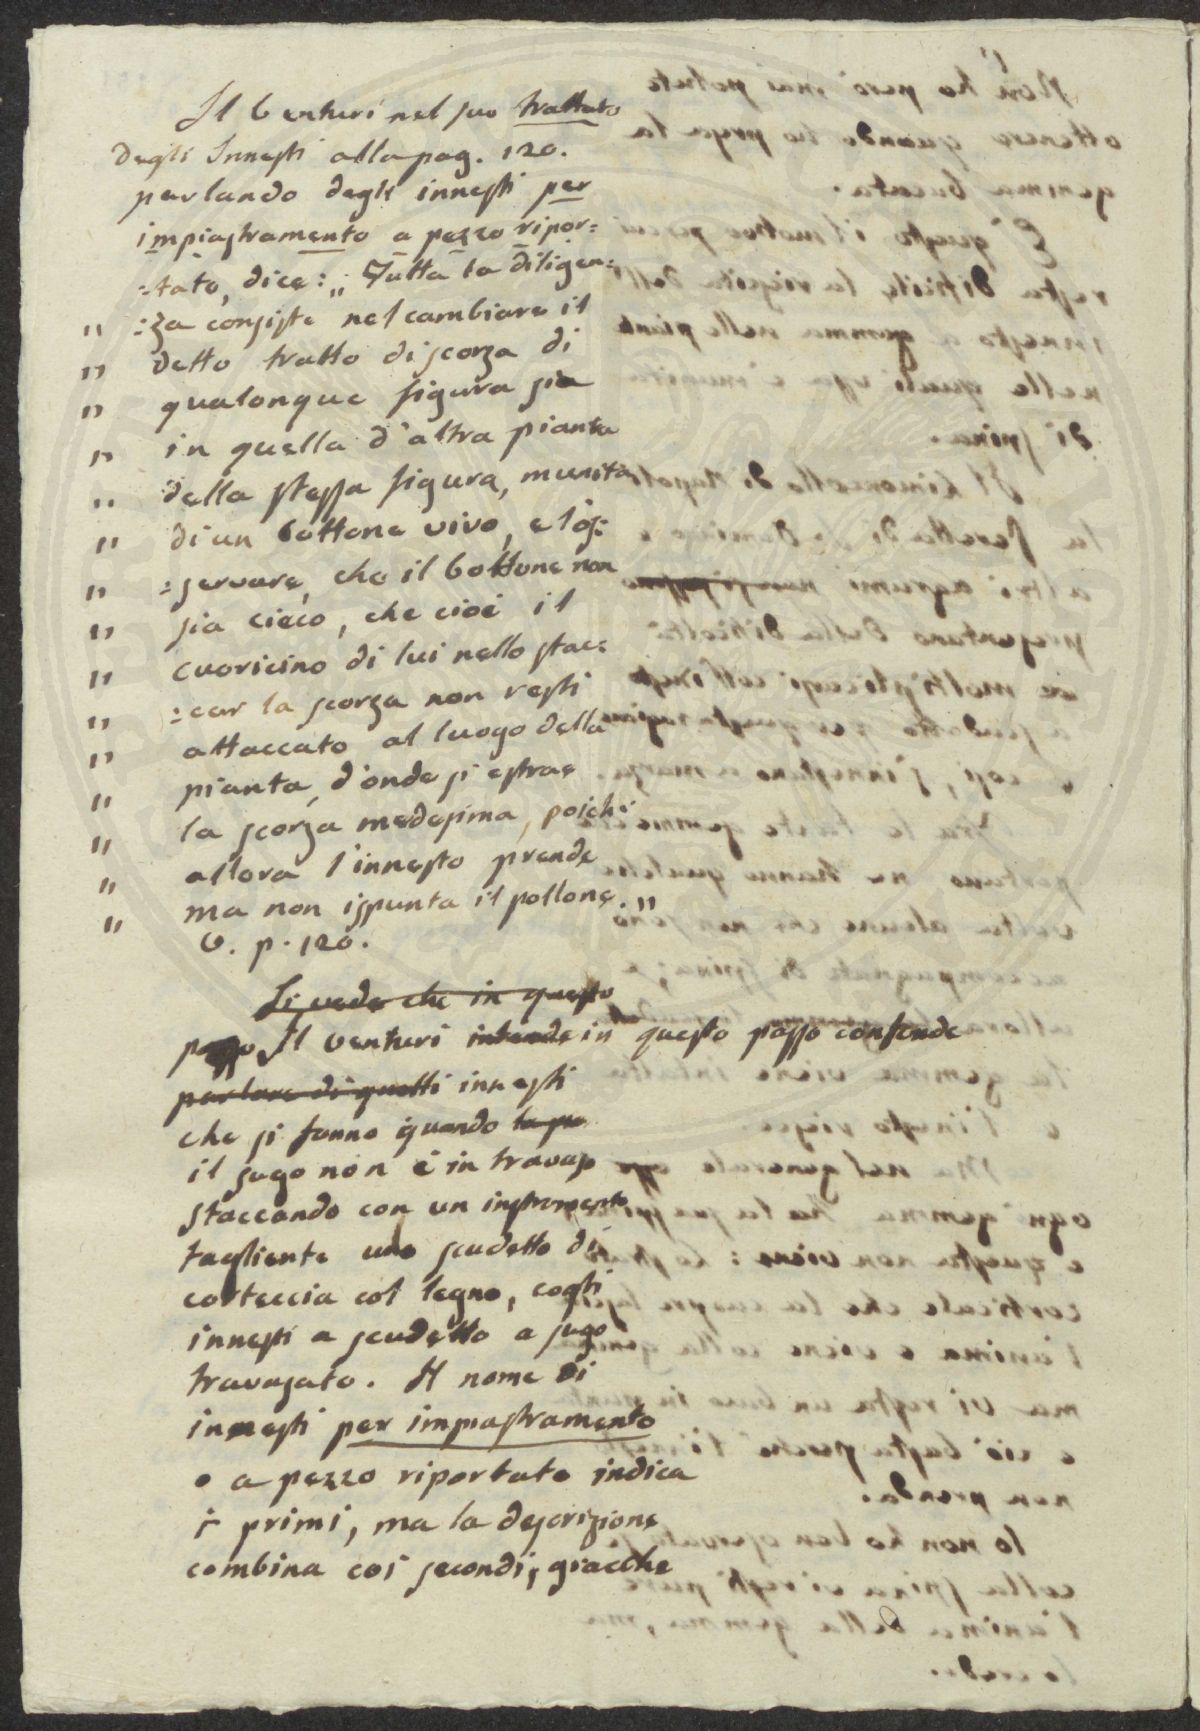 Il Venturi nel suo trattato
degli Innesti alla pag. 120.
parlando degli innesti per
impiastramento a pezzo ripor=
=tato, dice: „ Tutta la diligen=
„ =za consiste nel cambiare il
„ detto tratto di scorza di
„ qualonque figura sia
„ in quella d'altra pianta
„ della stessa figura, munita
„ di un bottone vivo, e l'os=
„ =servare, che il bottone non
„ sia cieco, che cioè il
„ cuoricino di lui nello stac=
„ =car la scorza non resti
„ attaccato al luogo della
„ pianta, d'onde si estrae
„ la scorza medesima, poichè
„ allora l'innesto prende
„ ma non ispunta il pollone. „
V. p. 120.
Si vede che in questo
passo Il Venturi intende in questo passo confonde
parlare di quelli innesti
che si fanno quando la pia
il sugo non è in travaso
staccando con un instromento
tagliente uno scudetto di
corteccia col legno, cogli
innesti a scudetto a sugo
travasato. Il nome di
innesti per impiastramento
o a pezzo riportato indica
i primi, ma la descrizione
combina coi secondi, giacche